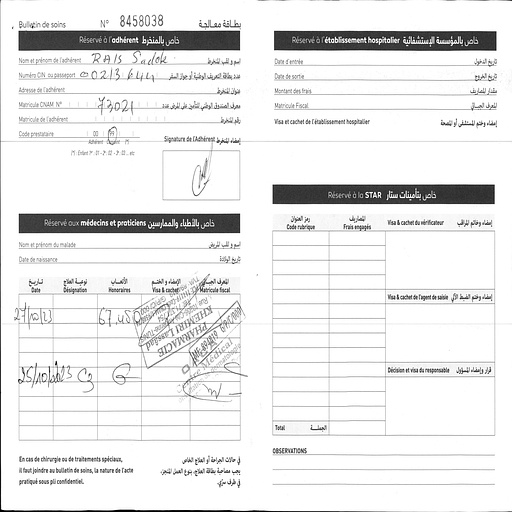 Bulletin de soins N° 8458038 بطاقة معالجة
Réservé à l'adhérent خاص بالمنخرط
Nom et prénom de l'adhérent RAIS Sadok اسم و لقب المنخرط
Numéro CIN ou passeport 00213644 عدد بطاقة التعريف الوطنية أو جواز السفر
Adresse de l'adhérent عنوان المنخرط
Matricule CNAM. N° 73021 معرف الصندوق الوطني للتأمين على المرض عدد
Matricule de l'adhérent رقم المنخرط
Code prestataire 00 99 Signature de l'Adhérent إمضاء المنخرط
Adhérent (*)
(*) : Enfant 1er : 01 - 2 : 02 - 3 : 03 ... etc
Réservé aux médecins et praticiens خاص بالأطباء والممارسين
Nom et prénom du malade اسم و لقب المريض
Date de naissance تاريخ الولادة
تاريخ نوعية العلاج الأتعاب الإمضاء و الختم المعرف الجبائي
Date Désignation Honoraires Visa & cachet Matricule fiscal
27/10/23 67.450
PHARMACIE
KHEMIRI Lassâad
25/10/2023 C3 G
En cas de chirurgie ou de traitements spéciaux,
il faut joindre au bulletin de soins, la nature de l'acte
pratiqué sous pli confidentiel.
في حالات الجراحة أو العلاج الخاص
يجب مصاحبة بطاقة العلاج، بنوع العمل المنجز،
في ظرف سري.
Réservé à l'établissement hospitalier خاص بالمؤسسة الإستشفائية
Date d'entrée تاريخ الدخول
Date de sortie تاريخ الخروج
Montant des frais مقدار المصاريف
Matricule Fiscal المعرف الجبائي
Visa et cachet de l'établissement hospitalier إمضاء وختم المستشفى أو المصحة
Réservé à la STAR خاص بتأمينات ستار
رمز العنوان المصاريف
Code rubrique Frais engagés Visa & cachet du vérificateur إمضاء وخاتم المراقب
Visa & cachet de l'agent de saisie إمضاء و ختم الضبط الآلي
Décision et visa du responsable قرار وإمضاء المسؤول
Total الجملة
OBSERVATIONS